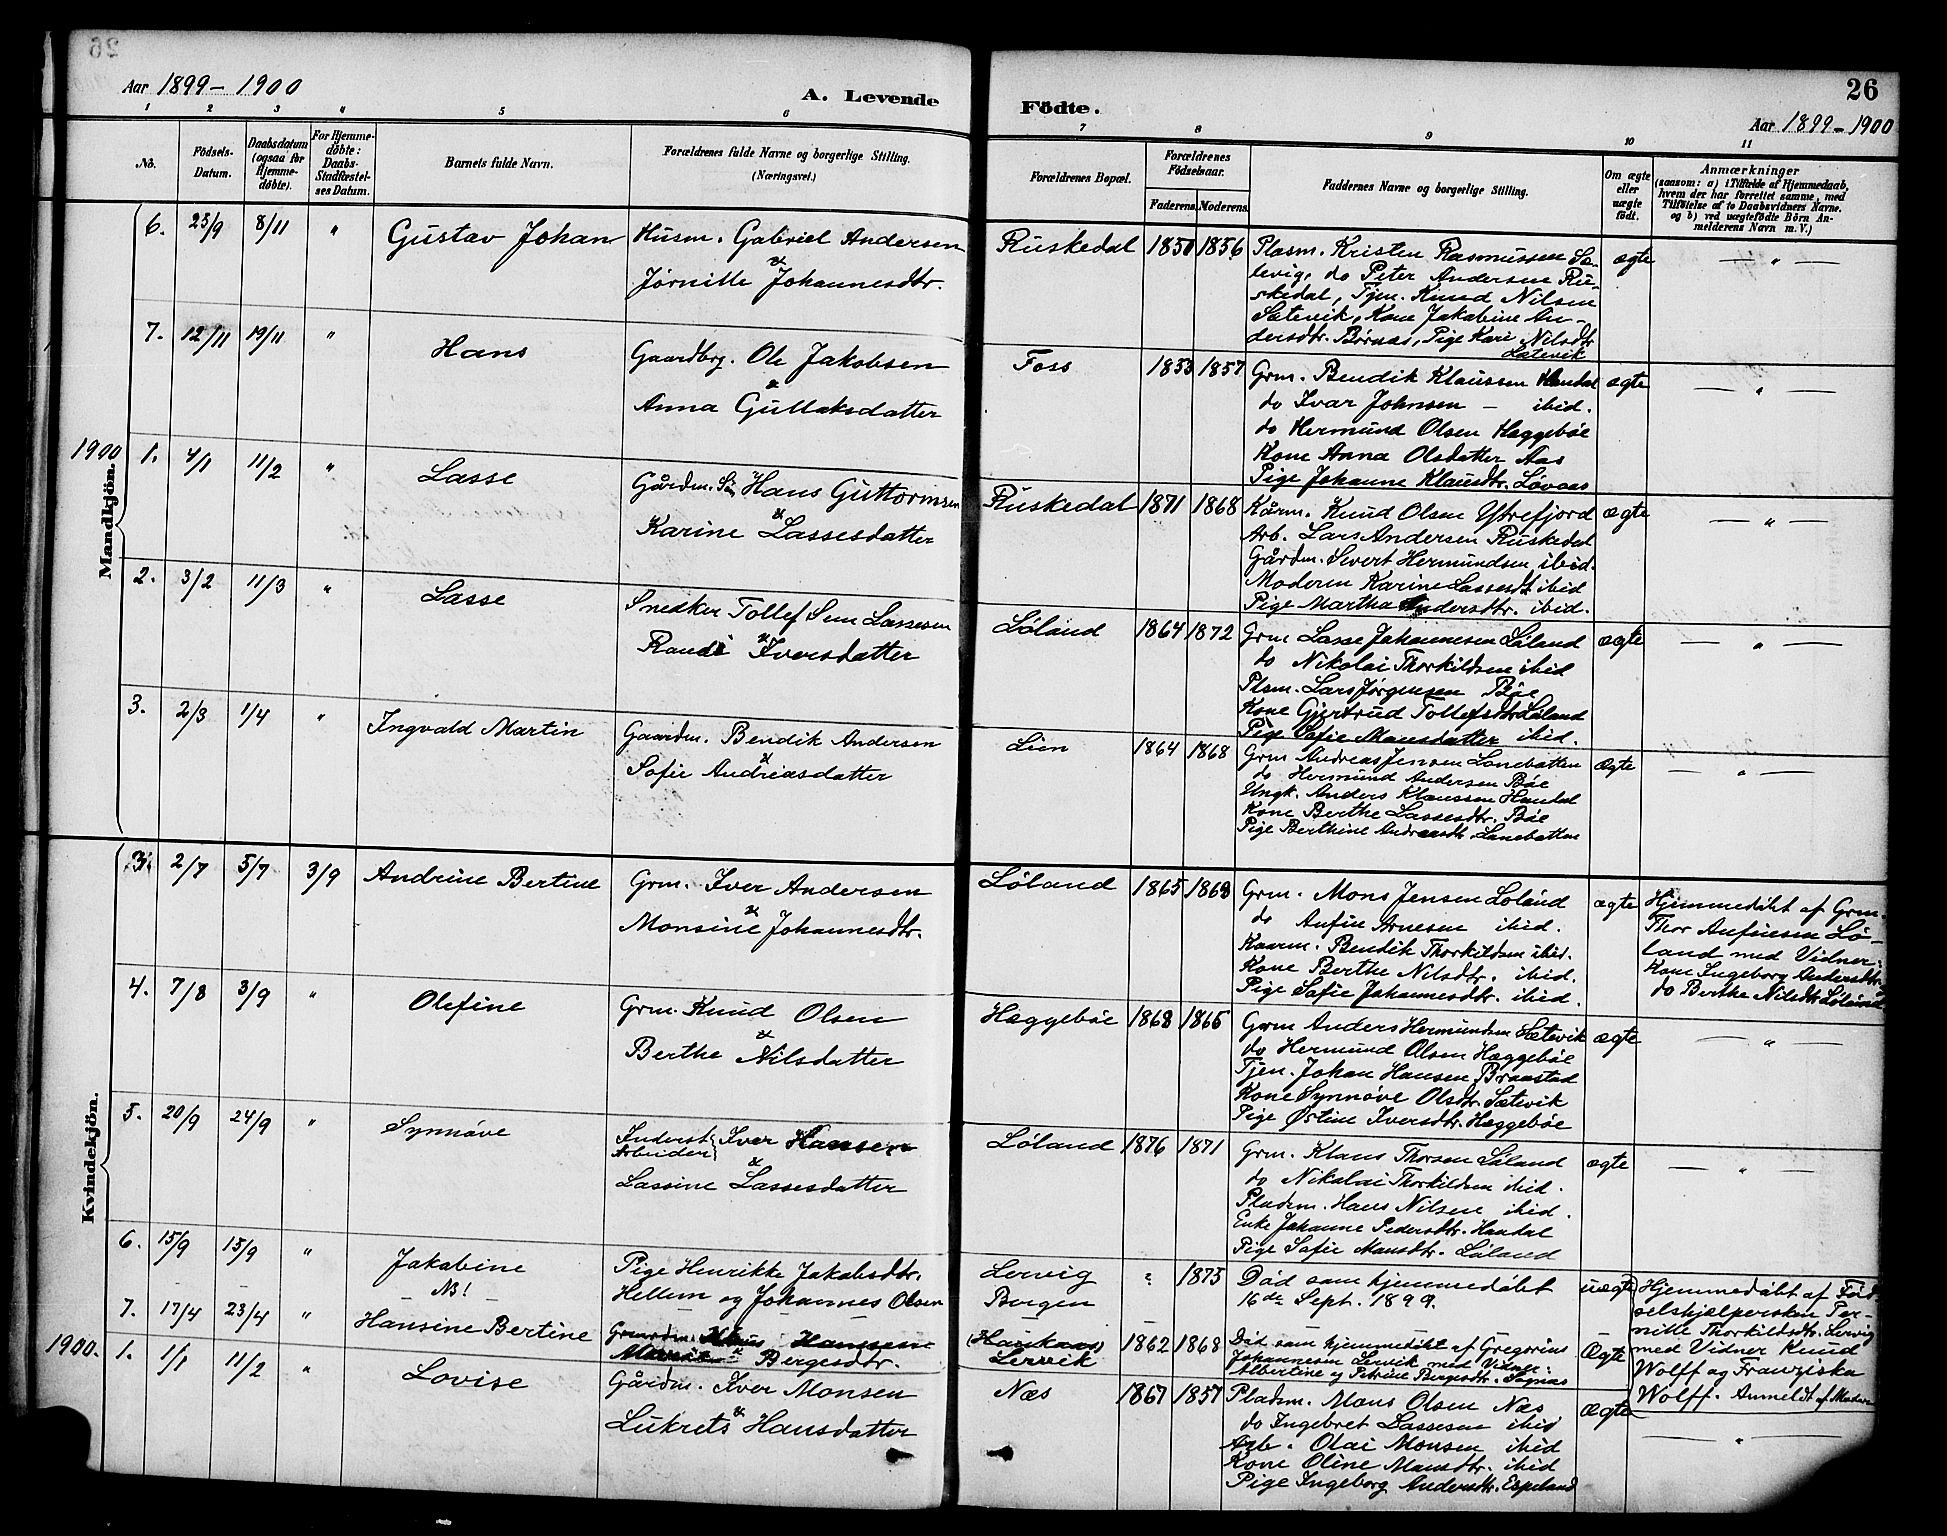 26
Aar 1899-1900
A. Levende
Födte.
Aar 1899-1900
1 2 3 4 5 6 7 8 9 10 11
No.
Födsels-Datum.
Daabsdatum (ogsaa for Hjemmedöbte).
For Hjemmedöbte: Daabs-Stadfæstelses Datum.
Barnets fulde Navn.
Forældrenes fulde Navne og borgerlige Stilling. (Næringsvei.)
Forældrenes Bopæl.
Forældrenes Födselsaar.
Faderens. Moderens.
Faddernes Navne og borgerlige Stilling.
Om ægte eller uægte födt.
Anmærkninger
(saasom: a) i Tilfælde af Hjemmedaab, hvem der har forrettet samme, med Tilföielse af to Daabsvidners Navne, og b) ved uægtefödte Börn Anmelderens Navn m. V.)
Mandkjön.
6. 25/9 8/11 " Gustav Johan
Husm. Gabriel Andersen
& Jørnille Johannesdtr.
Ruskedal 1850 1856
Plasm. Kristen Rasmussen Sæ-
levig, do Peter Andersen Ru-
skedal, Tjen. Knud Nilsen
Sætevik, Kone Jakobine An-
dersdtr. Børnæs, Pige Kari Nilsdtr.
Sætevik
ægte — " —
7. 12/11 19/11 " Hans
Gaardbrg. Ole Jakobsen
& Anna Gullaksdatter
Foss 1853 1857
Grm. Bendik Klaussen Handal
do Ivar Johnsen — ibid.
do Hermund Olsen Hæggebøe
Kone Anna Olsdatter Aas
Pige Johanne Klausdtr. Løvaas
ægte — " —
1900
1. 4/1 11/2 " Lasse
Gårdm. Sn Hans Guttormsen
& Karine Lassesdatter
Ruskedal 1871 1868
Kårm. Knud Olsen Ytrefjord
Arb. Lars Andersen Ruskedal
Gårdm. Sivert Hermundsen ibid.
Moderen Karine Lassesdt. ibid
Pige Martha Andersdtr. ibid.
ægte — " —
2. 3/2 11/3 " Lasse
Snedker Tollef Sem Lassesen
& Randi Iversdatter
Løland 1864 1872
Grm. Lasse Johannesen Løland
do Nikolai Thorkildsen ibid
Plsm. Lars Jørgensen Bøe
Kone Gjertrud Tollefsdtr. Løland
Pige Sofie Monsdatter ibid.
ægte — " —
3. 2/3 1/4 " Ingvald Martin
Gaardm. Bendik Andersen
& Sofie Andreasdatter
Lien 1864 1868
Grm. Andreas Jensen Lonebotten
do Hermund Andersen Bøe
Ungk. Anders Klaussen Handal
Kone Berthe Lassesdtr. Bøe
Pige Berthine Andreasdt. Lonebotten
Ægte — " —
Kvindekjön.
3. 2/7 5/7 3/9 Andrine Bertine
Grm. Iver Andersen
& Monsine Johannesdtr.
Løland 1865 1868
Grm. Mons Jensen Løland
do Anfin Arnesen ibid.
Kaarm. Bendik Thorkildsen ibid.
Kone Berthe Nilsdtr. ibid.
Pige Sofie Johannesdtr. ibid.
ægte
Hjemmedøbt af Grm.
Thor Anfinsen Lø-
land med Vidner:
Kone Ingeborg Andersdtr. &
do Berthe Nilsdtr. Løland
4. 7/8 3/9 " Olefine
Grm. Knud Olsen
& Berthe Nilsdatter
Hæggebøe 1868 1865
Grm. Anders Hermundsen Sætevik
do Hermund Olsen Hæggebøe
Tjen. Johan Hansen Braastad
Kone Synnøve Olsdtr. Sætevik
Pige Østine Iversdtr. Hæggebøe
ægte — " —
5. 20/9 24/9 " Synnøve
Inderst Arbeider } Iver Hansen
& Lassine Lassesdatter
Løland 1876 1871
Grm. Klaus Thorsen Løland
do Nikolai Thorkildsen ibid.
Pladsm. Hans Nilsen ibid.
Enke Johanne Pedersdtr. Handal
Pige Sofie Monsdtr. Løland
ægte — " —
6. 15/9 15/9 " Jakobine
NB!
Pige Henrikke Jakobsdtr.
Hellem og Johannes Olsen
Lervig
Bergen
" 1875
Død som hjemmedøbt
16de Sept. 1899.
uægte
Hjemmedøbt af Fød-
selshjælpersken Per-
nille Thorkildsdtr. Lervig
med Vidner Knud
Wolff og Franziska
Wolff. Anmeldt af Moderen
7. 17/4 23/4 " Hansine Bertine
Grmrdm. Hanssen
& Bergesdtr.
(Haukaas)
Lervik
1862 1868
Død som hjemmedøbt af Gregorius
Johannesen Lervik med Vidner:
Albertine og Petrine Bergesdtr. Sognæs
Ægte
1900.
1. 1/1 11/2 " Lovise
Gårdm. Iver Monsen
& Lukrets Hansdatter
Næs 1867 1857
Pladsm. Mons Olsen Næs
do Ingebret Lassesen ibid
Arb. Olai Monsen ibid
Kone Oline Monsdtr. ibid
Pige Ingeborg Andersdtr. Espeland
Ægte — " —